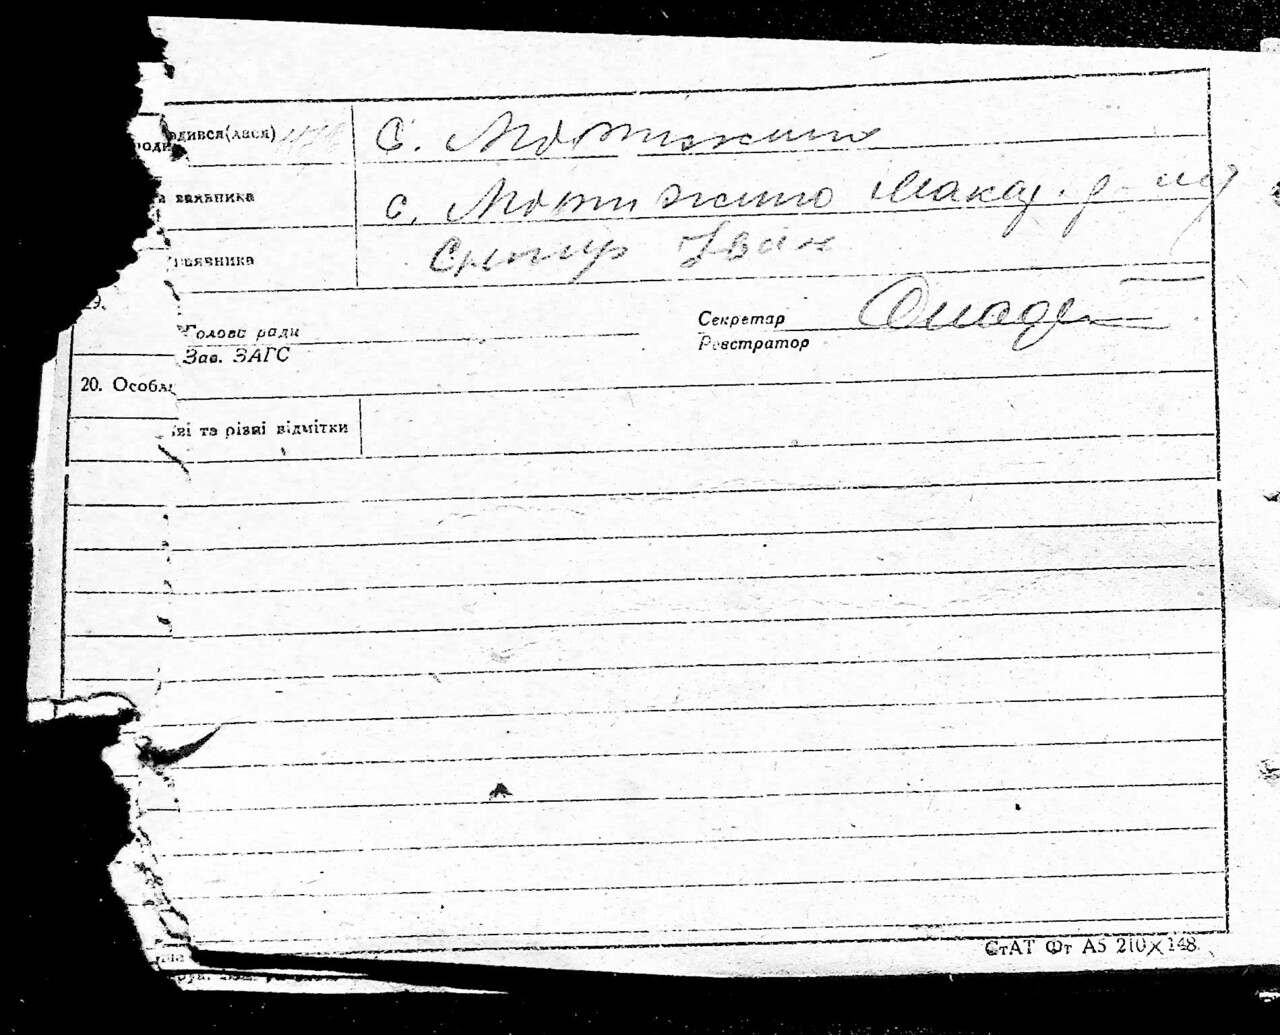 одився(лася) с. Мотижино
роди
заявника с. Мотижино Макар. р-ну
заявника Іван
19.
Голова ради Секретар
Зав. ЗАГС Реєстратор
20. Особл
ві та різні відмітки
СтАТ Фт А5 210×148